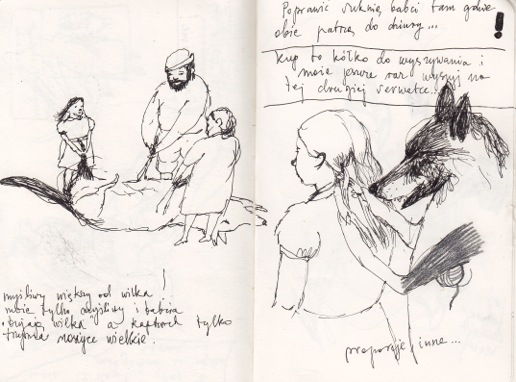 myśliwy większy od wilka !
może tylko myśliwy i babcia
wilka" a kapturek tylko
trzyma nożyce wielkie.
Poprawić suknię babci tam gdzie
obie patrzą do dziury... !
kup to kółko do wyszywania i
może jeszcze raz wyszyj na
tej drugiej serwetce...
proporcje inne...